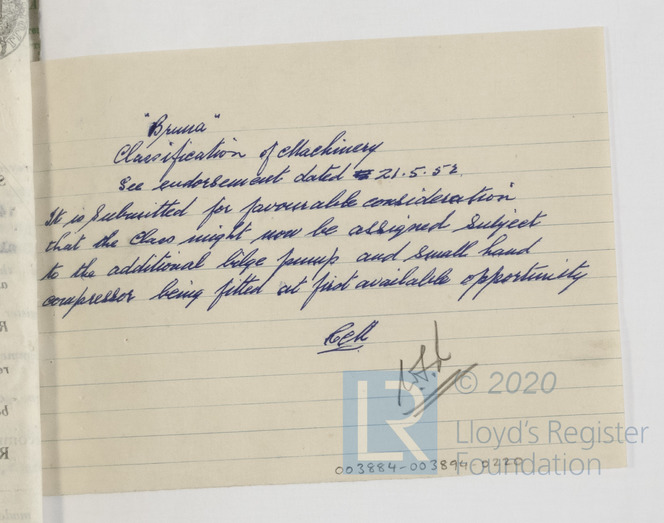 "Bruna"
Classification of Machinery
See endorsement dated 21.5.52.
It is submitted for favourable consideration
that the class might now be assigned subject
to the additional bilge pump and small hand
compressor being fitted at first available opportunity
LR
© 2020
Lloyd's Register
Foundation
003884-003894-0220